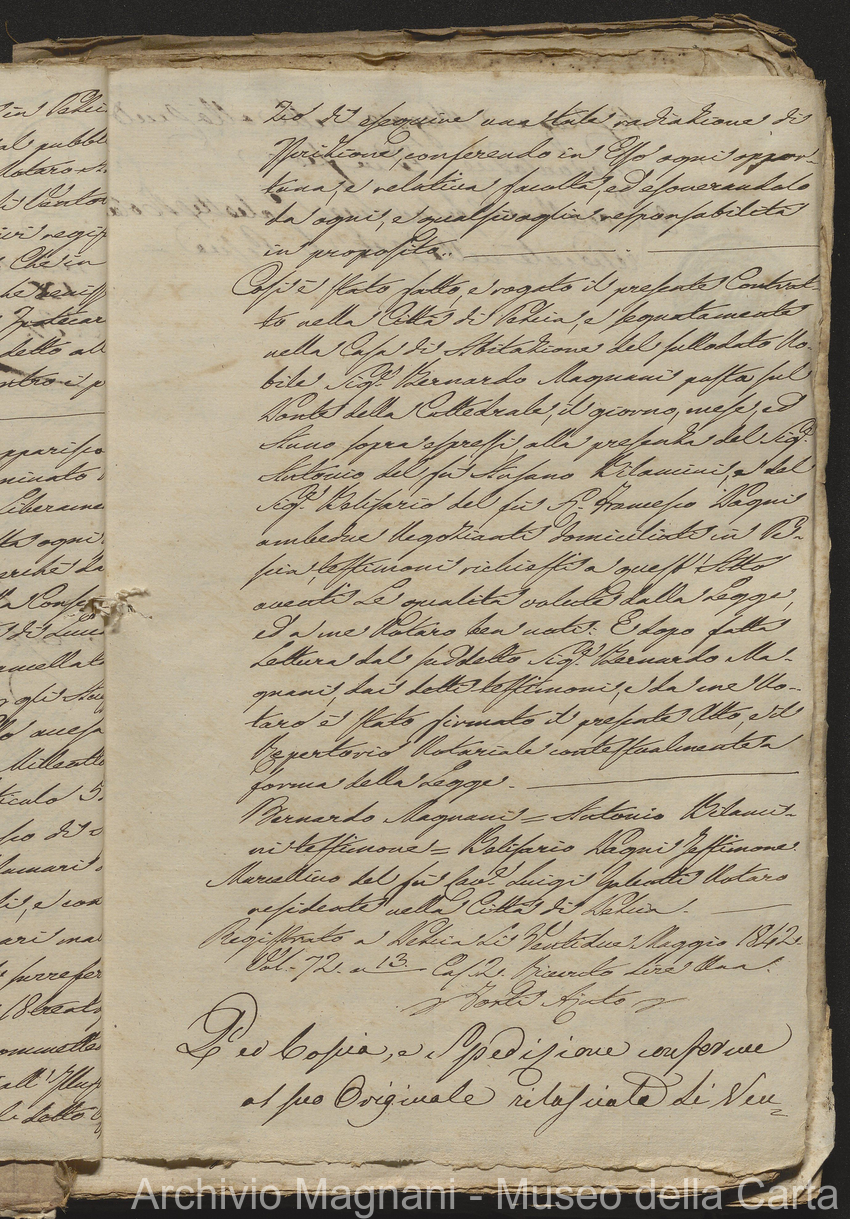 in Pescia
al pubbli
Notaro
di Ventu
Che in
detto all
ntro i p
pparisc
minato
liberame
tta ogni
perchè da
lla Cons
di Lucc
ancellat
Milleott
ticolo 5
po di
e con
18 cento
detto
zio di eseguire una tale radiazione di
Iscrizione, conferendo in Esso ogni oppor-
tuna, e relativa facoltà, ed esonerandolo
da ogni, e qualsivoglia responsabilità
in proposito.
Così è stato fatto, e rogato il presente Contrat-
to nella Città di Pescia, e segnatamente
nella Casa di Abitazione del sullodato No-
bile Sigr. Bernardo Magnani posta sul
Ponte della Cattedrale, il giorno, mese, ed
Anno sopra espressi, alla presenza del Sigr.
Antonio del fu Stefano Bilancini, e del
Sigr. Belisario del fu Sr. Francesco Pagni
ambedue Negozianti domiciliati in Pe-
scia, testimoni richiesti a quest'Atto
aventi le qualità volute dalla Legge,
ed a me Notaro ben noti. E dopo fatta
Lettura dal suddetto Sigr. Bernardo Ma-
gnani, dai detti testimoni, e da me No-
taro è stato firmato il presente Atto, e il
Repertorio Notariale contestualmente a
forma della Legge.
Bernardo Magnani = Antonio Bilanci-
ni testimone = Belisario Pagni Testimone
Marcellino del fu Cav. Luigi Galeotti Notaro
residente nella Città di Pescia.
Registrato a Pescia Li Ventidue Maggio 1842
Vol. 72. a 13. Cas. 2. Ricevuto Lire Una.
Forti Ajuto
Per Copia, e Spedizione conforme
al suo Originale rilasciata Li Ven=
Archivio Magnani - Museo della Carta